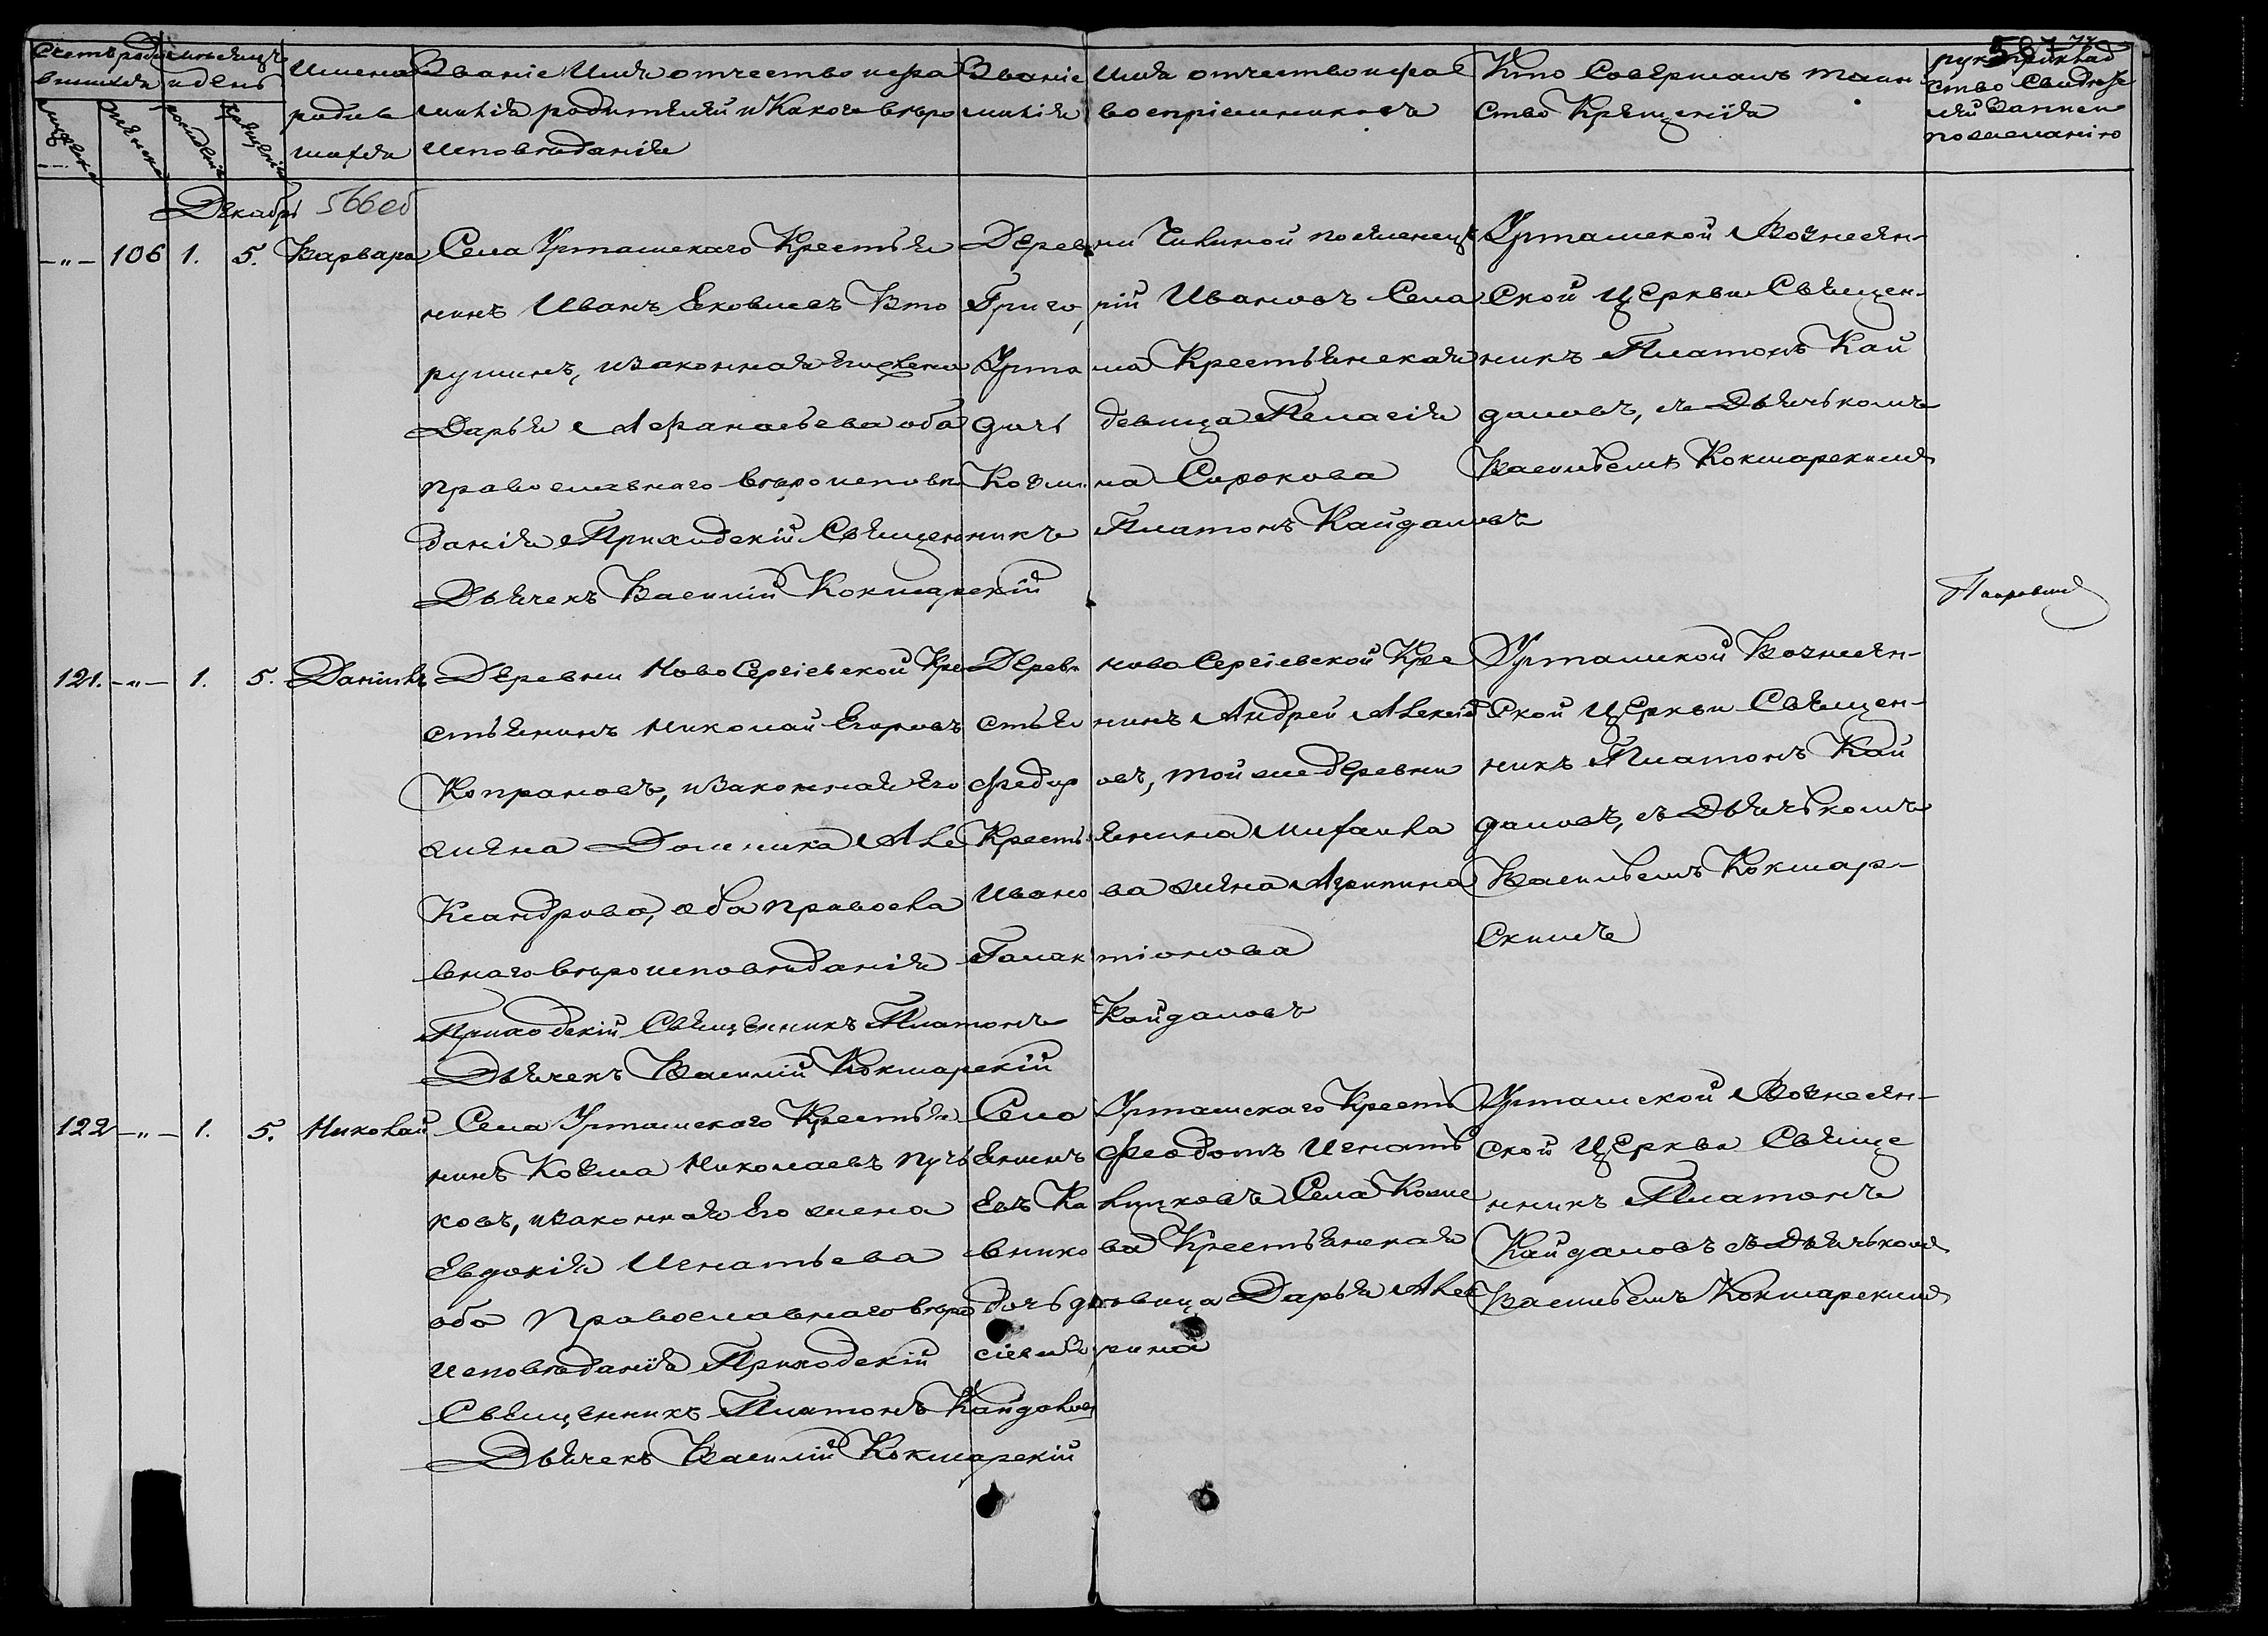 567
Счетъ роди мѣсяцъ
вшихся и день
Имена
родив
шихся
Званіе Имя отчество и фа
милія родителей и Какого вѣро
исповѣданія
Званіе Имя отчество и фа
милія воспріемниковъ
Кто Совершалъ таин
ство Крещенія
рукоприклад
ство Свидѣте
лей Записи
по желанію
Декабрь 566об
-"- 106 1. 5. Варвара
Села Урташскаго Крестья
нинъ Иванъ Яковлевъ Вто
рушинъ, и Законная его жена
Дарья Афанасьева оба
православнаго вѣроисповѣ
данія Приходскій Священникъ Платонъ Кайдаловъ
Дьячекъ Василій Кокшарскій
Деревни поселенецъ
Григорій Ивановъ Села
Урташа Крестьянская
дочь девица Пелагія
Козмина Сорокова
Урташской Вознесен-
Ской Церкви Священ-
никъ Платонъ Кай
даловъ, съ Дьячькомъ
Васильемъ Кокшарскимъ
121. -"- 1. 5. Даніилъ
Деревни Ново Сергіевской Кре
стьянинъ Николай Егоровъ
Копрановъ, и Законная его
жена Домника Але
Ксандрова, оба правосла
внаго вѣроисповѣданія
Приходскій Священникъ Платонъ Кайдаловъ
Дьячекъ Василій Кокшарскій
Деревн ново Сергіевской Кре
стьянинъ Андрей Алексѣ
Федоровъ, той же деревни
Крестьянина Михаила
Иванова жена Агрипина
Галактіонова
Урташкой Вознесен-
Ской Церкви Священ-
никъ Платонъ Кай
даловъ, съ Дьячькомъ
Васильемъ Кокшар-
Скимъ
122 -"- 1. 5. Николай
Села Урташскаго Крестья
нинъ Козма Николаевъ Пучь
ковъ, и законная Его жена
Евдокія Игнатьева
оба Православнаго вѣро
исповѣданія Приходскій
Священникъ Платонъ Кайдаловъ
Дьячекъ Василій Кокшарскій
Села Урташскаго Кресть
янинъ Феодотъ Игнать
евъ Калицковъ Села Коже
вникова Крестьянская
дочь девица Дарья Алек
Урташской Вознесен-
ской Церкви Свяще
нникъ Платонъ
Кайдаловъ съ Дьячькомъ
Васильемъ Кокшарскимъ